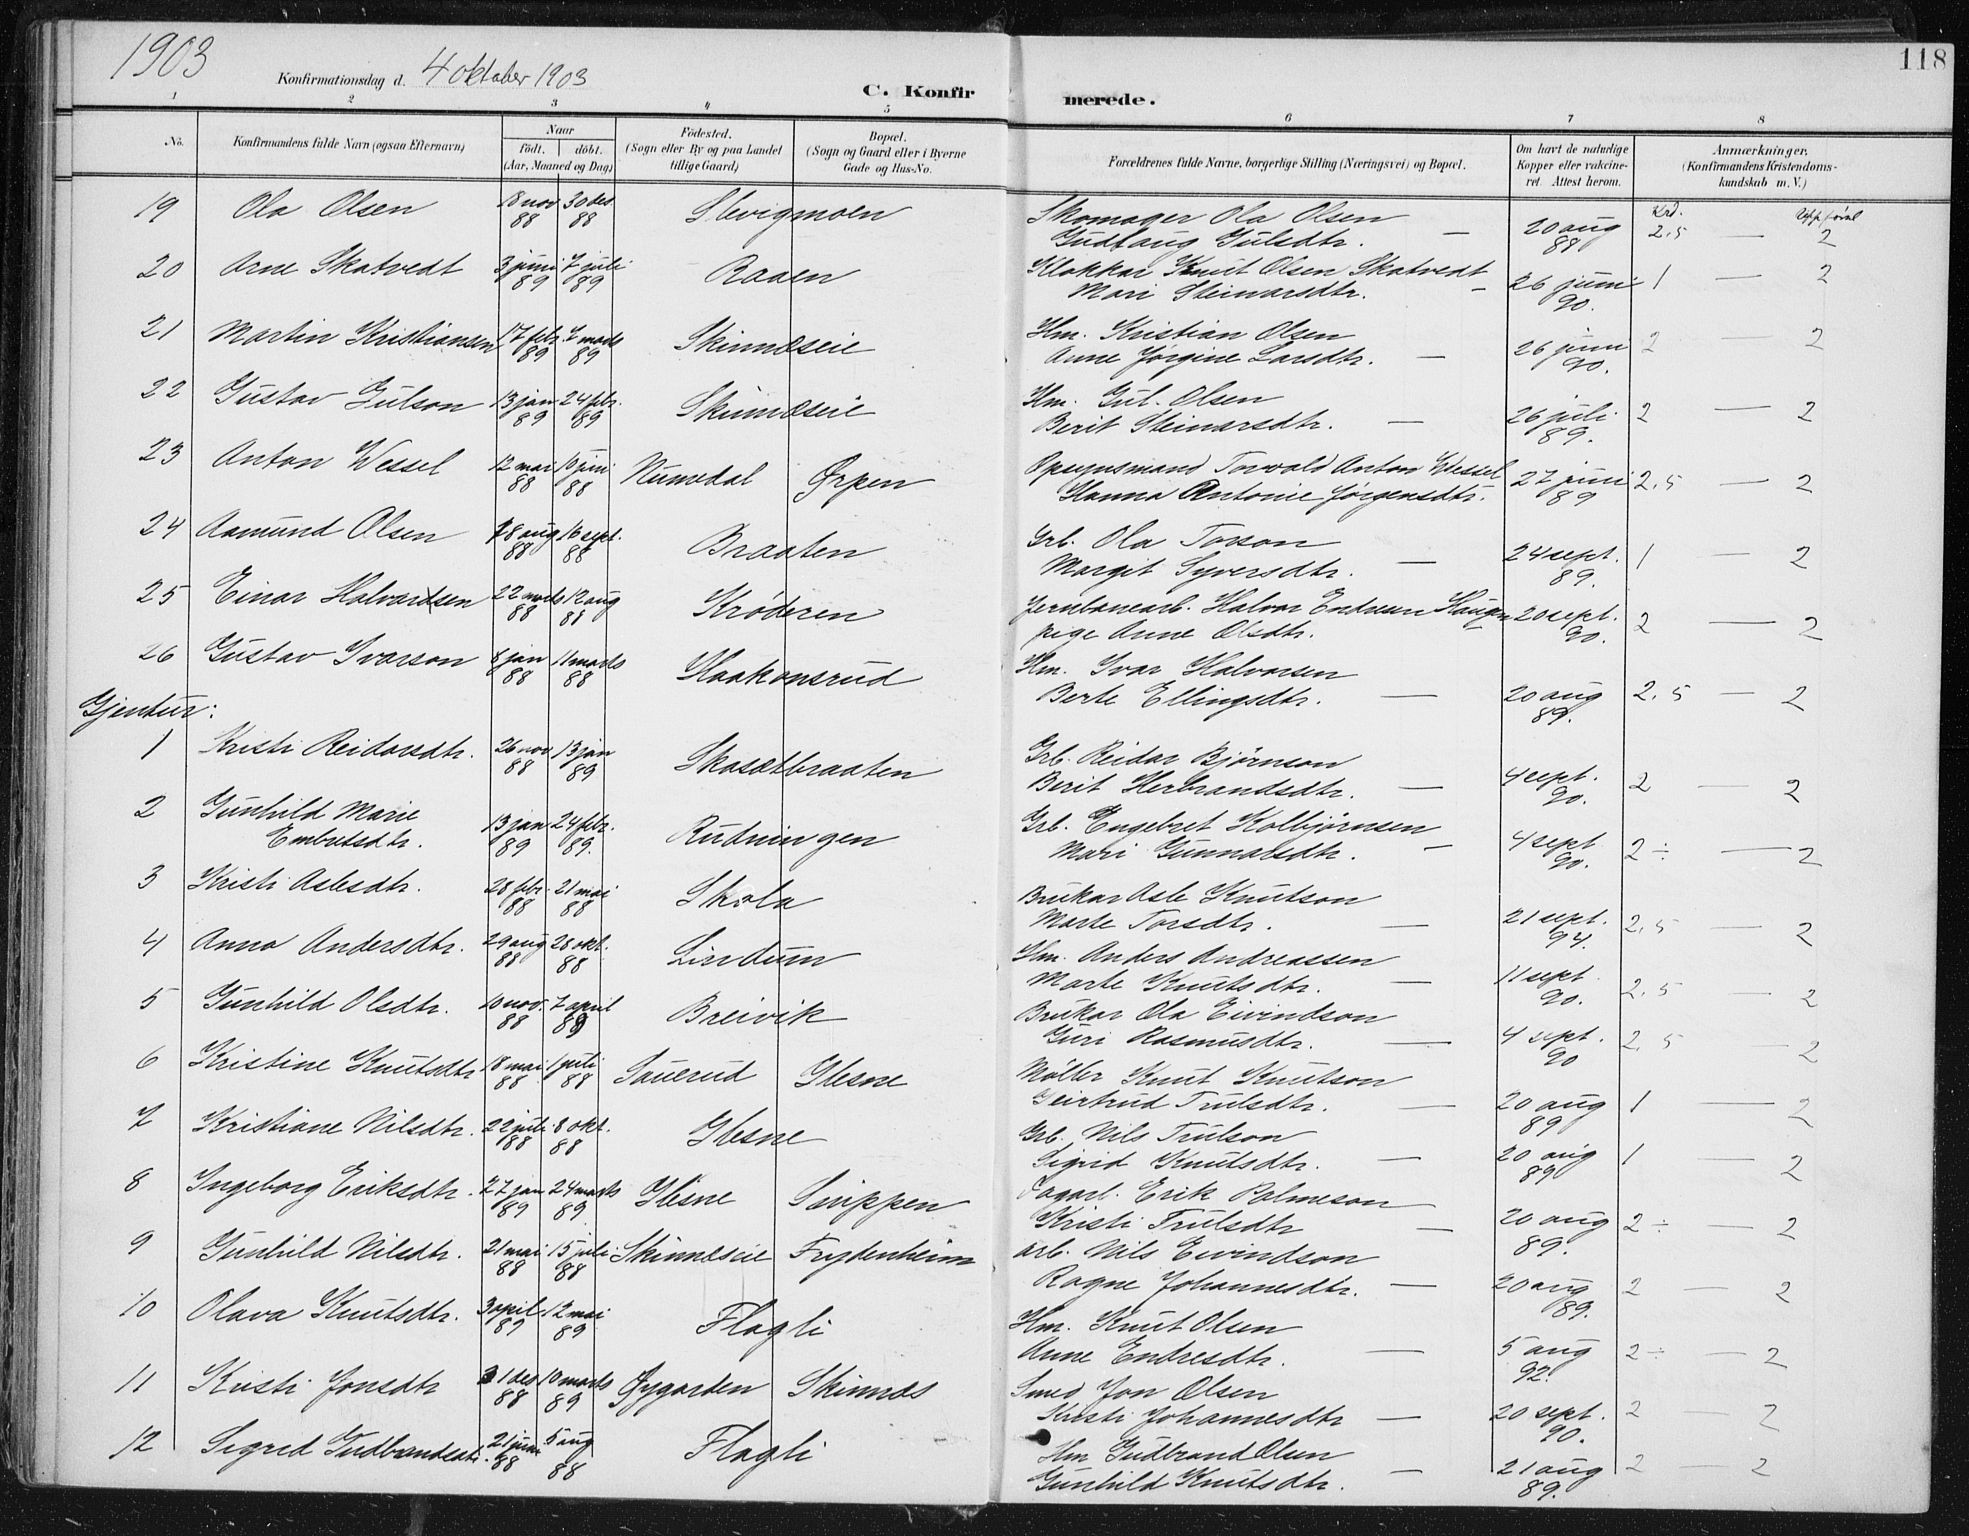 1903
118
Konfirmationsdag d. 4 oktober 1903
C. Konfirmerede.
1 2 3 4 5 6 7 8
No.
Konfirmandens fulde Navn (ogsaa Efternavn)
Naar
födt. döbt.
(Aar, Maaned og Dag)
Födested.
(Sogn eller By og paa Landet
tillige Gaard)
Bopæl.
(Sogn og Gaard eller i Byerne
Gade og Hus-No.
Forældrenes fulde Navne, borgerlige Stilling (Næringsvei) og Bopæl.
Om havt de naturlige
Kopper eller vakcine-
ret. Attest herom.
Anmærkninger.
(Konfirmandens Kristendoms-
kundskab m. V.)
Krd.
19 Ola Olsen 18 nov 88 30 des 88 Slevigmoen Skomager Ola Olsen
Gudlaug Gulsdtr. — 20 aug 88 2,5 — 2
20 Arne Skatvedt 3 juni 89 7 juli 89 Raaen Klokkar Knut Olsen Skatvedt
Mari Steinarsdtr. - 26 juni 90. 1 — 2
21 Martin Kristiansen 17 febr. 89 7 marts 89 Skinnæseie Hm. Kristian Olsen
Anne Jørgine Larsdtr. — 26 juni 90. 2 — 2
22 Gustav Gulson 13 jan 89 24 febr. 89 Skinnæseie Hm. Gul. Olsen
Berit Steinarsdtr. — 26 juli 89. 2 — 2
23 Anton Wessel 12 mai 88 10 juni 88 Numedal Ørpen Opsynsmand Torvald Anton Wessel
Hanna Antonie Jørgensdtr. 27 juni 89 2,5 — 2
24 Aamund Olsen 18 aug 88 16 sept. 88 Braaten Grb. Ola Torson
Margit Syversdtr. — 24 sept. 89. 1 — 2
25 Einar Halvardsen 22 marts 88 12 aug 88 Krøderen Jernbanearb. Halvar Endresen Haugen
pige Anne Olsdtr. 20 sept. 90. 2 — 2
26 Gustav Ivarson 8 jan 88 11 marts 88 Haakonsrud Hm. Ivar Halvorsen
Berte Ellingsdtr. — 20 aug 89. 2,5 — 2
Gjentur:
1 Kristi Reidarsdtr. 26 nov 88 13 jan 89 Skasætbraaten Grb. Reidar Bjørnson
Berit Herbrandsdtr. — 4 sept. 90. 2 — 2
2 Gunhild Marie
Embretsdtr. 13 jan 89 24 febr. 89. Rudningen Grb. Engebret Kolbjørnsen
Mari Gunnalsdtr. - 4 sept 90. 2 ÷ — 2
3 Kristi Aslesdtr. 28 febr. 88 21 mai 88 Skola Brukar Asle Knutson
Marte Torsdtr. — 21 sept. 94. 2,5 — 2
4 Anna Andersdtr. 29 aug 88 28 okt. 88 Lindum Hm. Anders Andreassen
Marte Knutsdtr. — 11 sept. 90. 2,5 — 2
5 Gunhild Olsdtr. 10 nov. 88 7 april 89 Breivik Brukar Ola Eivindson
Guri Rasmusdtr. — 4 sept. 90 2,5 — 2
6 Kristine Knutsdtr 18 mai 88 1 juli 88 Sauerud Glesne Møller Knut Knutson
Geirtrud Trulsdtr. — 20 aug 89 1 — 2
7 Kristiane Nilsdtr. 22 juli 88 8 okt. 88 Glesne Grb. Nils Trulson
Sigrid Knutsdtr. — 20 aug 89 1 — 2
8 Ingeborg Eriksdtr. 27 jan 89 24 marts 89 Glesne Svippen Dagarb. Erik Palmeson
Kristi Trulsdtr — 20 aug 89. 2 ÷ — 2
9 Gunhild Nilsdtr. 21 mai 88 15 juli 88 Skinnæseie Frydenheim arb. Nils Eivindson
Ragne Johannesdtr. — 20 aug 89. 2 — 2
10 Olava Knutsdtr. 3 april 89 12 mai 89 Flagli Hm. Knut Olsen
Anne Endresdtr. — 5 aug 92. 2 ÷ — 2
11 Kristi Jonsdtr 31 des 88 10 marts 89 Øygarden Skinnæs Smed Jon Olsen
Kristi Johannesdtr — 20 sept. 90. 2 — 2
12 Sigrid Gudbrandsdtr. 21 juni 88 5 aug 88 Flagli Hm Gudbrand Olsen
Gunhild Knutsdtr. — 21 aug 89. 2 — 2